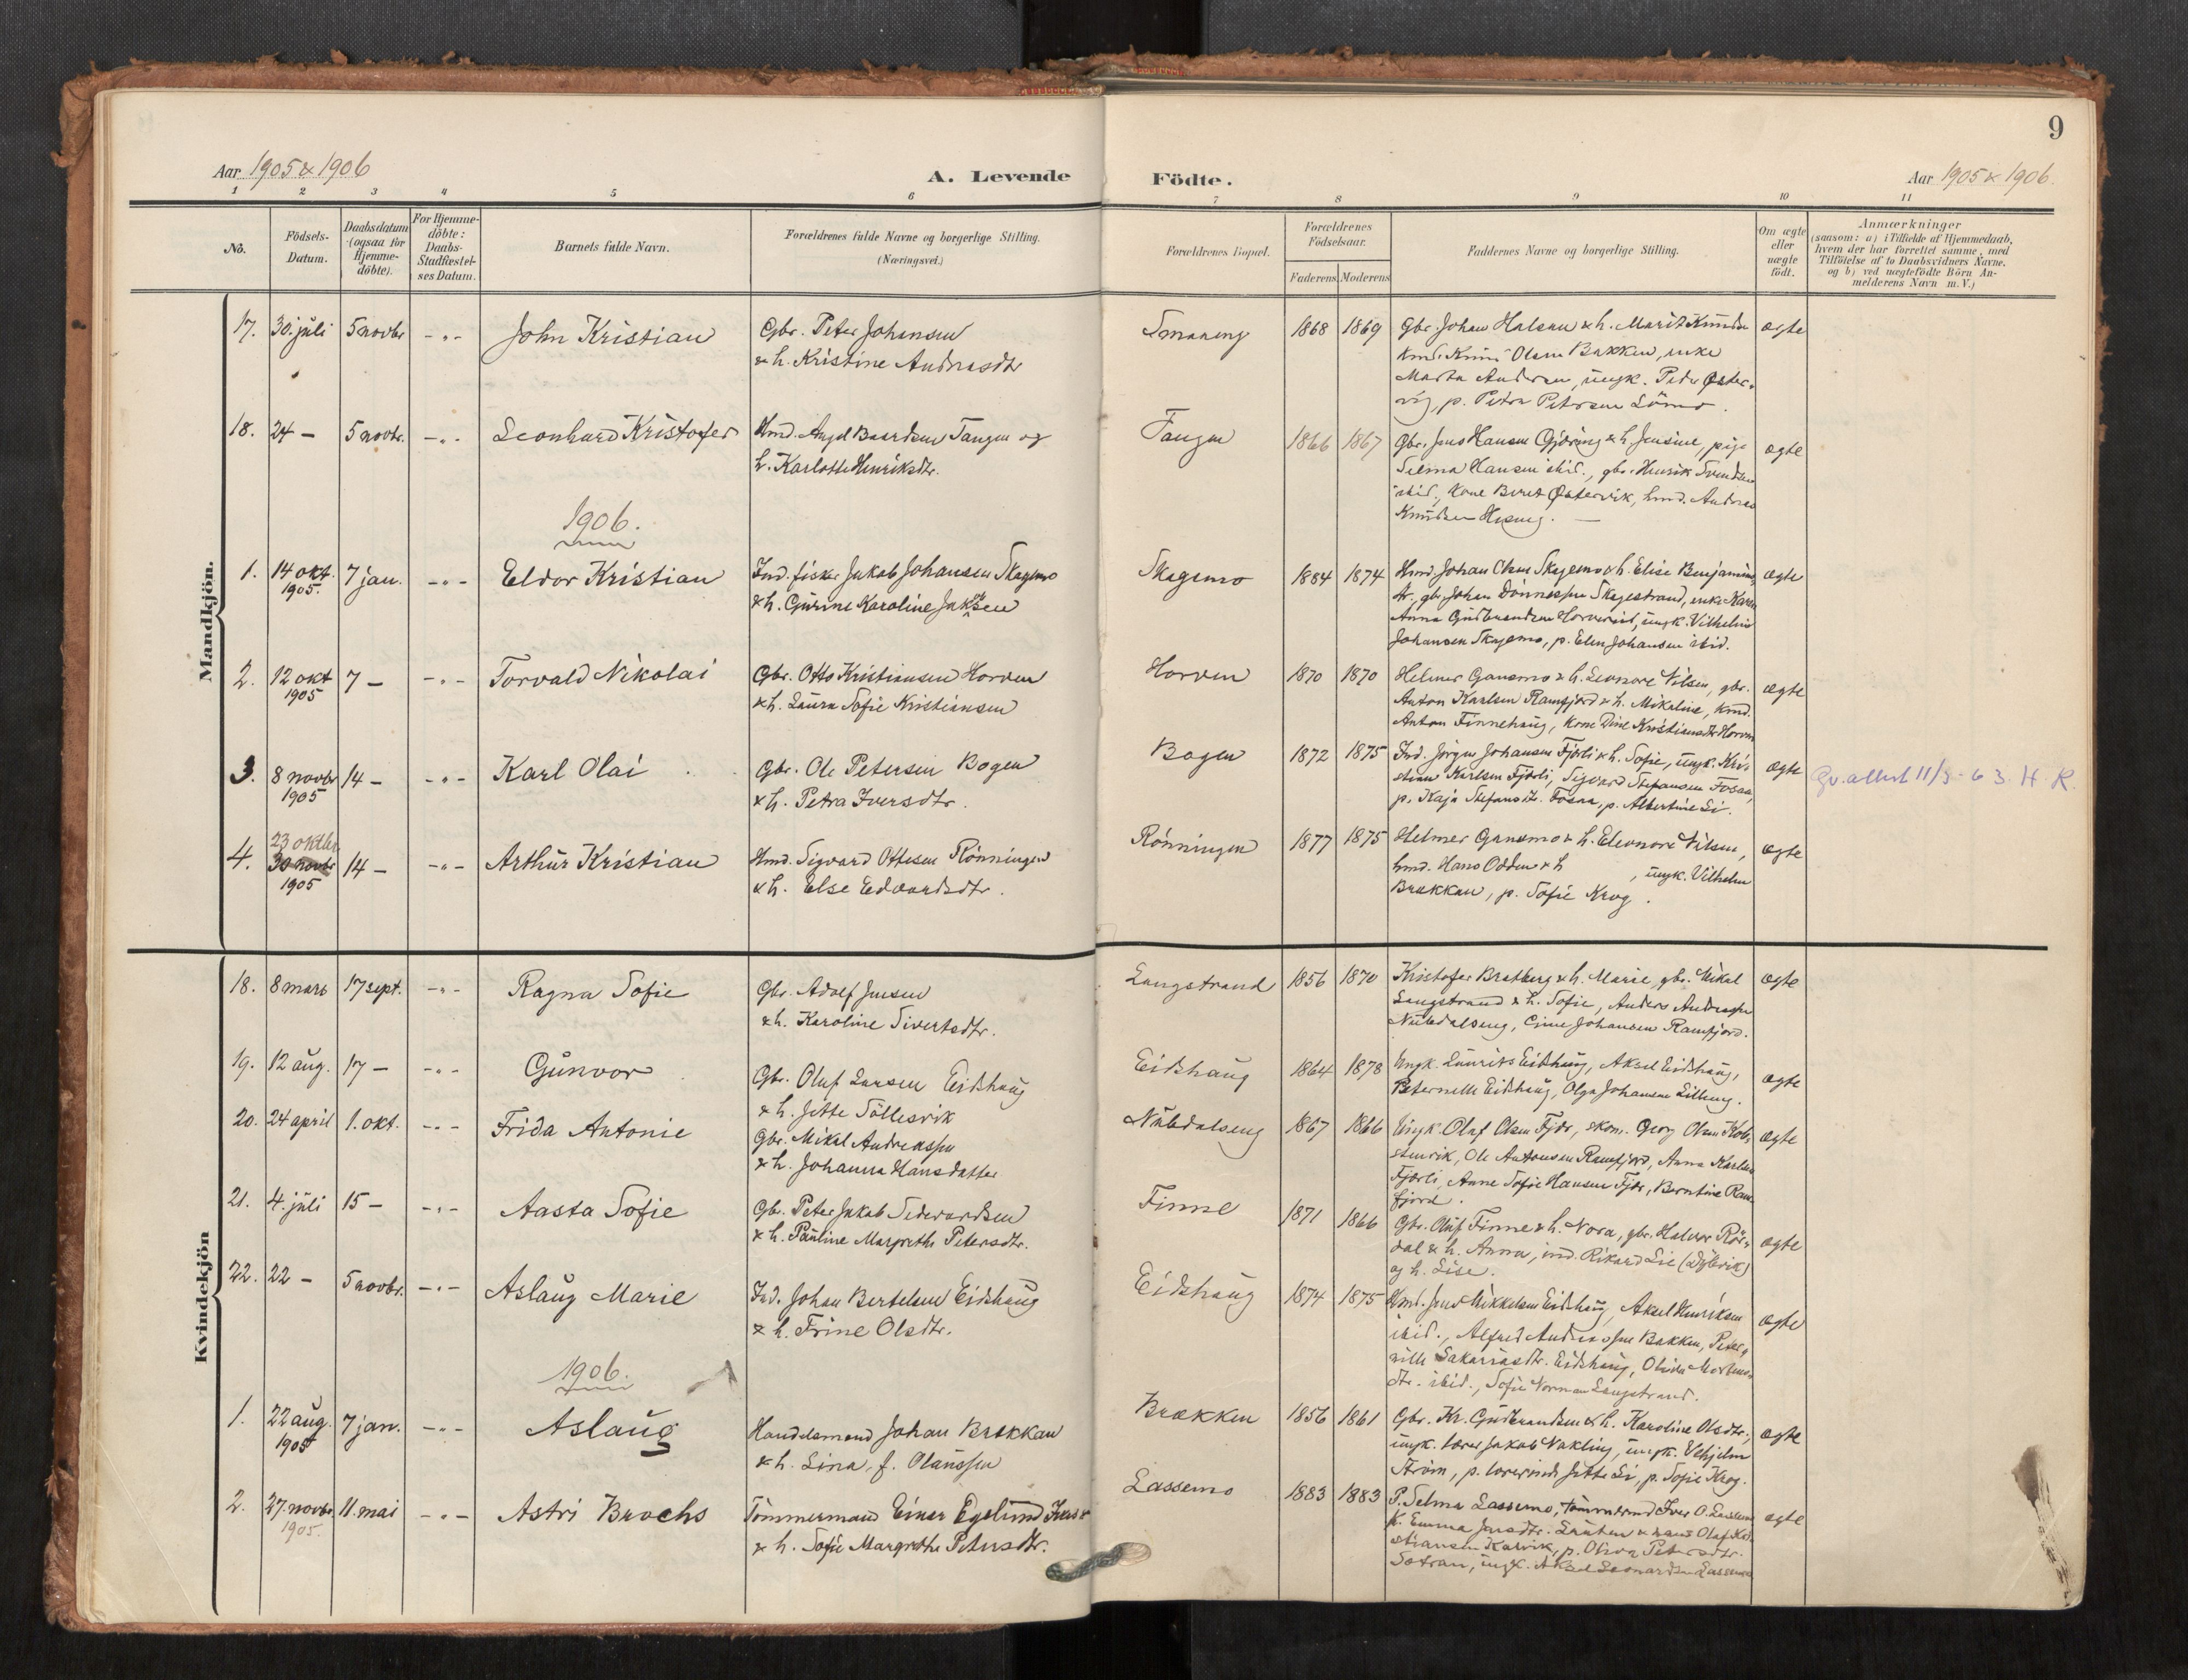 9
Aar 1905 & 1906
A. Levende
Födte.
Aar 1905 & 1906.
1 2 3 4 5 6 7 8 9 10 11
No.
Födsels-
Datum.
Daabsdatum
(ogsaa for
Hjemme-
döbte).
For Hjemme-
döbte:
Daabs-
Stadfæstel-
ses Datum.
Barnets fulde Navn.
Forældrenes fulde Navne og borgerlige Stilling.
(Næringsvei.)
Forældrenes Bopæl.
Forældrenes
Födselsaar.
Faderens. Moderens
Faddernes Navne og borgerlige Stilling.
Om ægte
eller
uægte
født.
Anmærkninger
(saasom: a) i Tilfælde af Hjemmedaab,
hvem der har forrettet samme, med
Tilföielse af to Daabsvidners Navne.
og b) ved uægtefödte Börn An-
melderens Navn m.V.)
Mandkjön.
17. 30. juli 5 novbr - " - John Kristian
Gbr. Peter Johansen
& h. Kristine Andreasdtr
1868 1869
Gbr. Johan Halsan & h. Marit
Olsen Bakken, enke
Marta Andersen, ungk. Peder Øster-
vig, p. Petra Petersen
ægte
18. 24 - 5 novbr. - " - Leonhard Kristofer
Hmd. Angel Baardsen Tangen og
h. Karlotte Henriksdtr.
Tangen 1866 1867
Gbr. Jens Hansen & h. Jensine, pige
Selma Hansen ibid., gbr. Henrik Svendsen
ibid., kone Beret Østervik, hmd. Andreas
Knudsen
ægte
1906.
1. 14 okt. 1905. 7 jan. - " - Eldor Kristian
Ind. fisker Jakob Johansen Skagemo
& h. Gurine Karoline Jakobsen
Skagemo 1884 1874
Hmd. Johan Olsen Skagemo & h. Elise Benjamins-
dtr., gbr. Johan Dønnessen Skagestrand, enke Karen
Anna Gudbrandsen ungk. Vilhelm
Johansen Skagemo, p. Elen Johansen ibid.
ægte
2. 12 okt 1905 7 - - " - Torvald Nikolai
Gbr. Otto Kristiansen Horven
& h. Laura Sofie Kristiansen
Horven 1870 1870
Helmer Gansmo & h. Leonore Nilsen, gbr.
Anton Karlsen Ramfjord & h. Mikaline, hmd.
Anton Finnehaug, kone Dine Kristiansdtr Horven
ægte
3. 8 novbr 1905 14 - - " - Karl Olai
Gbr. Ole Petersen Bogen
& h. Petra Iversdtr.
Bogen 1872 1875
Ind. Jörgen Johansen Fjærli & h. Sofie, ungk. Kri-
stian Karlsen Fjærli, Sigvard Stefansen Fosaa,
p. Kaja Stefansdtr. Fosaa, p. Albertine Li.
ægte
11/3-63. H. R.
4. 23 oktbr 30 novbr 1905 14 - - " - Arthur Kristian
Hmd. Sigvard Ottesen Rönningen
& h. Else Edvardsdtr.
Rönningen 1877 1875
Helmer Gansmo & h. Eleonore Nilsen,
hmd. Hans Odden & h , ungk. Vilhelm
Brækkan, p. Sofie Krog.
ægte
Kvindekjön
18. 8 mars 17 sept. - " - Ragna Sofie
Gbr. Adolf Jensen
& h. Karoline Sivertsdtr.
Langstrand 1856 1870
Kristofer Bratberg & h. Marie, gbr. Mikal
Langstrand & h. Sofie, Anders Andreassen
Nubdalseng, Johansen Ramfjord.
ægte
19. 12 aug. 17 - - " - Gunvor
Gbr. Oluf Larsen Eidshaug
& h. Jette Söllesvik
Eidshaug 1864 1878
Ungk. Laurits Eidshaug, Aksel Eidshaug,
Peternelle Eidshaug, Olga Johansen
ægte
20. 24 april 1. okt. - " - Frida Antonie
Gbr. Mikal Andreassen
& h. Johanna Hansdatter
Nubdalseng 1867 1866
Ungk. Olaf Olsen Fjær, skom. Georg Olsen
Ole Antonsen Ramfjord, Anna Karlsen
Fjærli, Anne Sofie Hansen Fjær, Berntine Ram-
fjord.
ægte
21. 4. juli 15 - - " - Aasta Sofie
Gbr. Peter Jakob
& h. Pauline Margrethe Petersdtr.
Finne 1871 1866
Gbr. Oluf Finne & h. Nora, gbr. Halvor Rör-
dal & h. Anna, ind. Rikard Lie (Dypvik)
og h. Lise.
ægte
22. 22 - 5 novbr. - " - Aslaug Marie
Ind. Johan Bertelsen Eidshaug
& h. Trine Olsdtr.
Eidshaug 1874 1875
Hmd. Jens Mikkelsen Eidshaug, Aksel Henriksen
ibid., Alfred Andreassen Bakken, Peter-
nille Sakariasdtr. Eidshaug, Olivia Mortens-
dtr. ibid., Sofie Norman Langstrand.
ægte
1906.
1. 22 aug. 1905 7 jan. - " - Aslaug
Handelsmand Johan Brækkan
& h. Lina, f. Olaussen
Brækken 1856 1861
Gbr. Kr. Gudbrandsen & h. Karoline Olsdtr.,
ungk. lærer Jakob Vakling, ungk. Vilhjelm
Ström, p. lærerinde Jette Li, p. Sofie Krog.
ægte
2. 27. novbr. 1905. 11. mai - " - Astri Brochs
Tömmermand Einar Egelund
& h. Sofie Margrethe Petersdtr.
Lassemo 1883 1883
P. Selma Lassemo, tömmermand Iver O. Lassemo
k. Emma Jensdtr. Olaf Kri-
stiansen p. Olive Petersdtr.
ungk. Aksel Leonardsen Lassemo
ægte